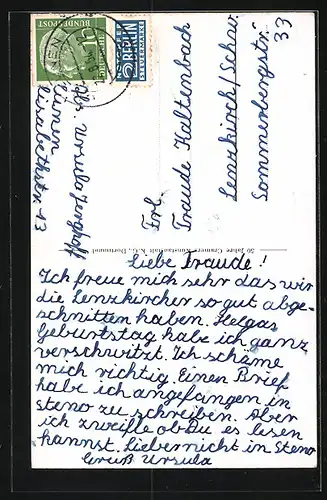 DEUTSCHE BUNDESPOST
NOTOPFER
2 BERLIN
STEUERMARKE
Abs. Ursula
Frl.
Traude Kaltenbach
Lenzkirch/Schw.
Sommerbergstr.
33
50 Jahre Cramers Kunstanstalt K.G., Dortmund
Liebe Traude!
Ich freue mich sehr das wir
die Lenzkircher so gut abge-
schnitten haben. Helgas
Geburtstag habe ich ganz
verschwitzt. Ich schäme
mich richtig. Einen Brief
habe ich angefangen in
steno zu schreiben. Aber
ich zweifle ob Du es lesen
kannst. Lieber nicht in Steno
Gruß Ursula